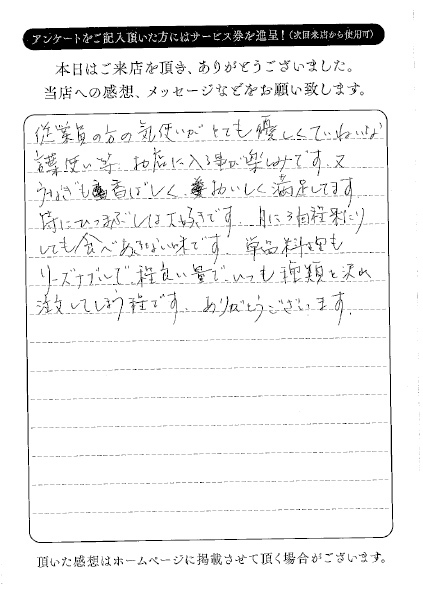 アンケートをご記入頂いた方にはサービス券を進呈!(次回来店から使用可)
本日はご来店を頂き、ありがとうございました。
当店への感想、メッセージなどをお願い致します。
従業員の方の気使いがとても優しくていねいな
言葉使い等、お店に入る事が楽しみです。又
うなぎも香ばしく、おいしく満足してます。
特にひつまぶしは大好きです。月に3回程来たり
しても食べあきない味です。単品料理も
リーズナブルで、程良い量で、いつも種類を
注文してしまう程です。ありがとうございます。
頂いた感想はホームページに掲載させて頂く場合がございます。